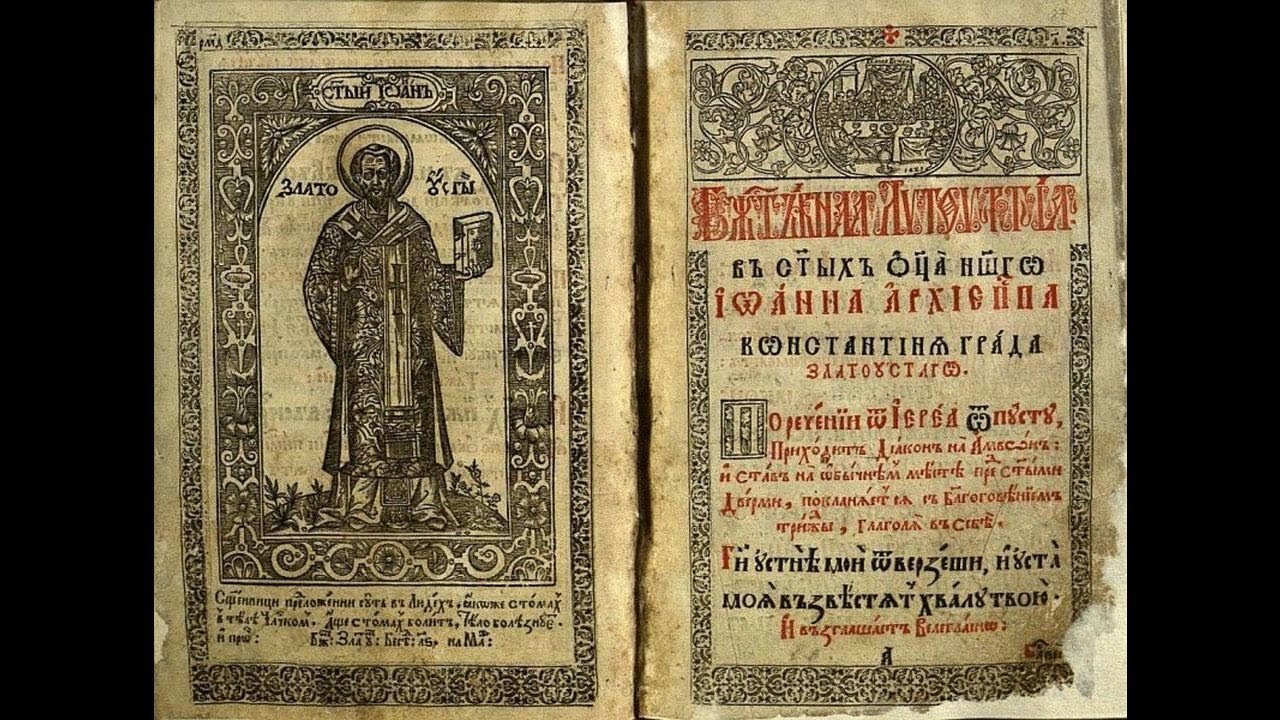 рмд
СТЫЙ ІСѠАНЪ
ЗЛАТО ꙊСТЫ
Сщ҃енници преложенни сꙋть въ Людехъ, ꙗкоже стомахъ
в̾ тѣлѣ Чл҃чком. Аще стомах болитъ, Тѣло болѣзнꙋе.
и про҇: Бж҇: Злат꙼: Бесѣ҇: на Мат҇:
Бж҇твеннаѧ Литоургіѧ
въ ст҃ыхъ ѻц҃а нш҃гѡ
Іѡанна архіеп҇па
Кѡнстантінѧ града
Златоустагѡ.
По реченїи ѿ Іереа ѿпусту,
Приходитъ Діаконъ на Амвѡнъ:
и ставъ на ѡбычнѣм мѣстѣ пре҇ ст҃ыми
Двермы, покланяетсѧ съ Благоговѣніемъ
трижы, глаголѧ въ себѣ.
Гд҇и устнѣ мои ѿверзеши, и уста
моѧ възвѣстят хвалу твою.
И възглашает Велегласно:
А